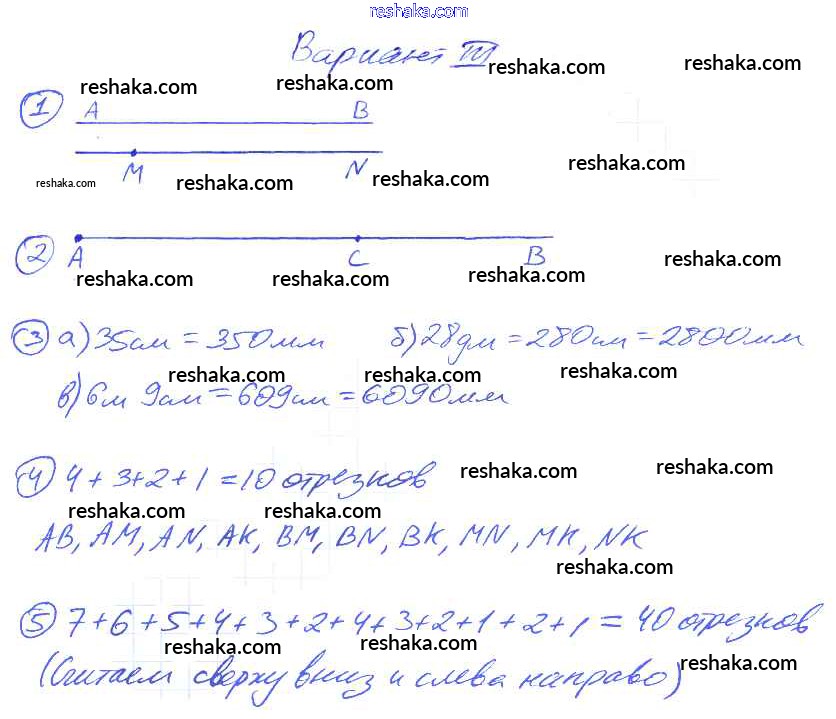 reshaka.com
Вариант III
reshaka.com reshaka.com reshaka.com reshaka.com
1 A B
M N
reshaka.com reshaka.com reshaka.com reshaka.com
2 A C B
reshaka.com reshaka.com reshaka.com reshaka.com
3 а) 35см = 350мм б) 28дм = 280см = 2800мм
reshaka.com reshaka.com reshaka.com
в) 6м 9см = 609см = 6090мм
4 4 + 3 + 2 + 1 = 10 отрезков
reshaka.com reshaka.com
reshaka.com reshaka.com
AB, AM, AN, AK, BM, BN, BK, MN, MK, NK
reshaka.com
5 7 + 6 + 5 + 4 + 3 + 2 + 4 + 3 + 2 + 1 + 2 + 1 = 40 отрезков
reshaka.com reshaka.com reshaka.com
(Считаем сверху вниз и слева направо)